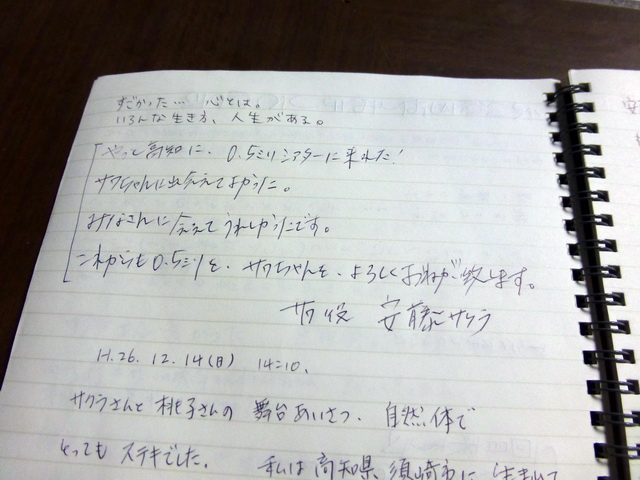 すごかった… 心とは。
いろんな生き方、人生がある。
やっと高知に、0.5ミリシアターに来れた!
サワちゃんに出会えてよかった。
みなさんに会えてうれしかったです。
これからも0.5ミリを、サワちゃんを、よろしくおねがい致します。
サワ役 安藤サクラ
H.26. 12. 14(日) 14:10.
サクラさんと 桃子さんの 舞台あいさつ、自然体で
とっても ステキでした。 私は 高知県 須崎市に 生まれて